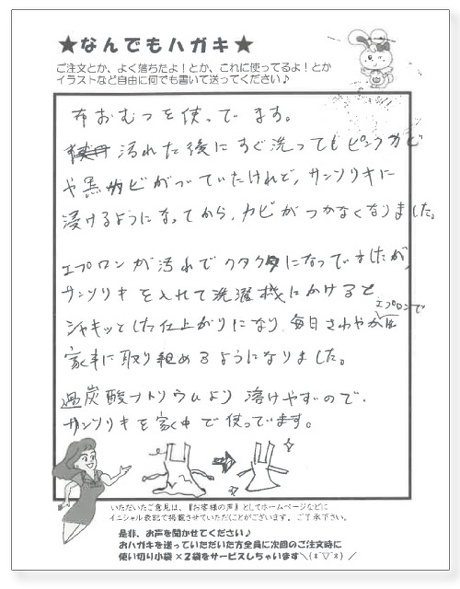 ★なんでもハガキ★
ご注文とか、よく落ちたよ！とか、これに使ってるよ！とか
イラストなど自由に何でも書いて送ってください♪
布おむつを使っています。
汚れた後にすぐ洗ってもピンクカビ
や黒カビがついていたけれど、サンソリキに
浸けるようになってから、カビがつかなくなりました。
エプロンが汚れでクタクタになっていましたが、
サンソリキを入れて洗濯機にかけると
シャキッとした仕上がりになり、毎日さわやかな
エプロンで
家事に取り組めるようになりました。
過炭酸ナトリウムより溶けやすいので、
サンソリキを家中で使っています。
いただいたご意見は、『お客様の声』としてホームページなどに
イニシャル表記で掲載させていただくことがございます。ご了承下さい。
是非、お声を聞かせてください♪
おハガキを送っていただいた方全員に次回のご注文時に
使い切り小袋×2袋をサービスしちゃいます＼(*´▽`*)／